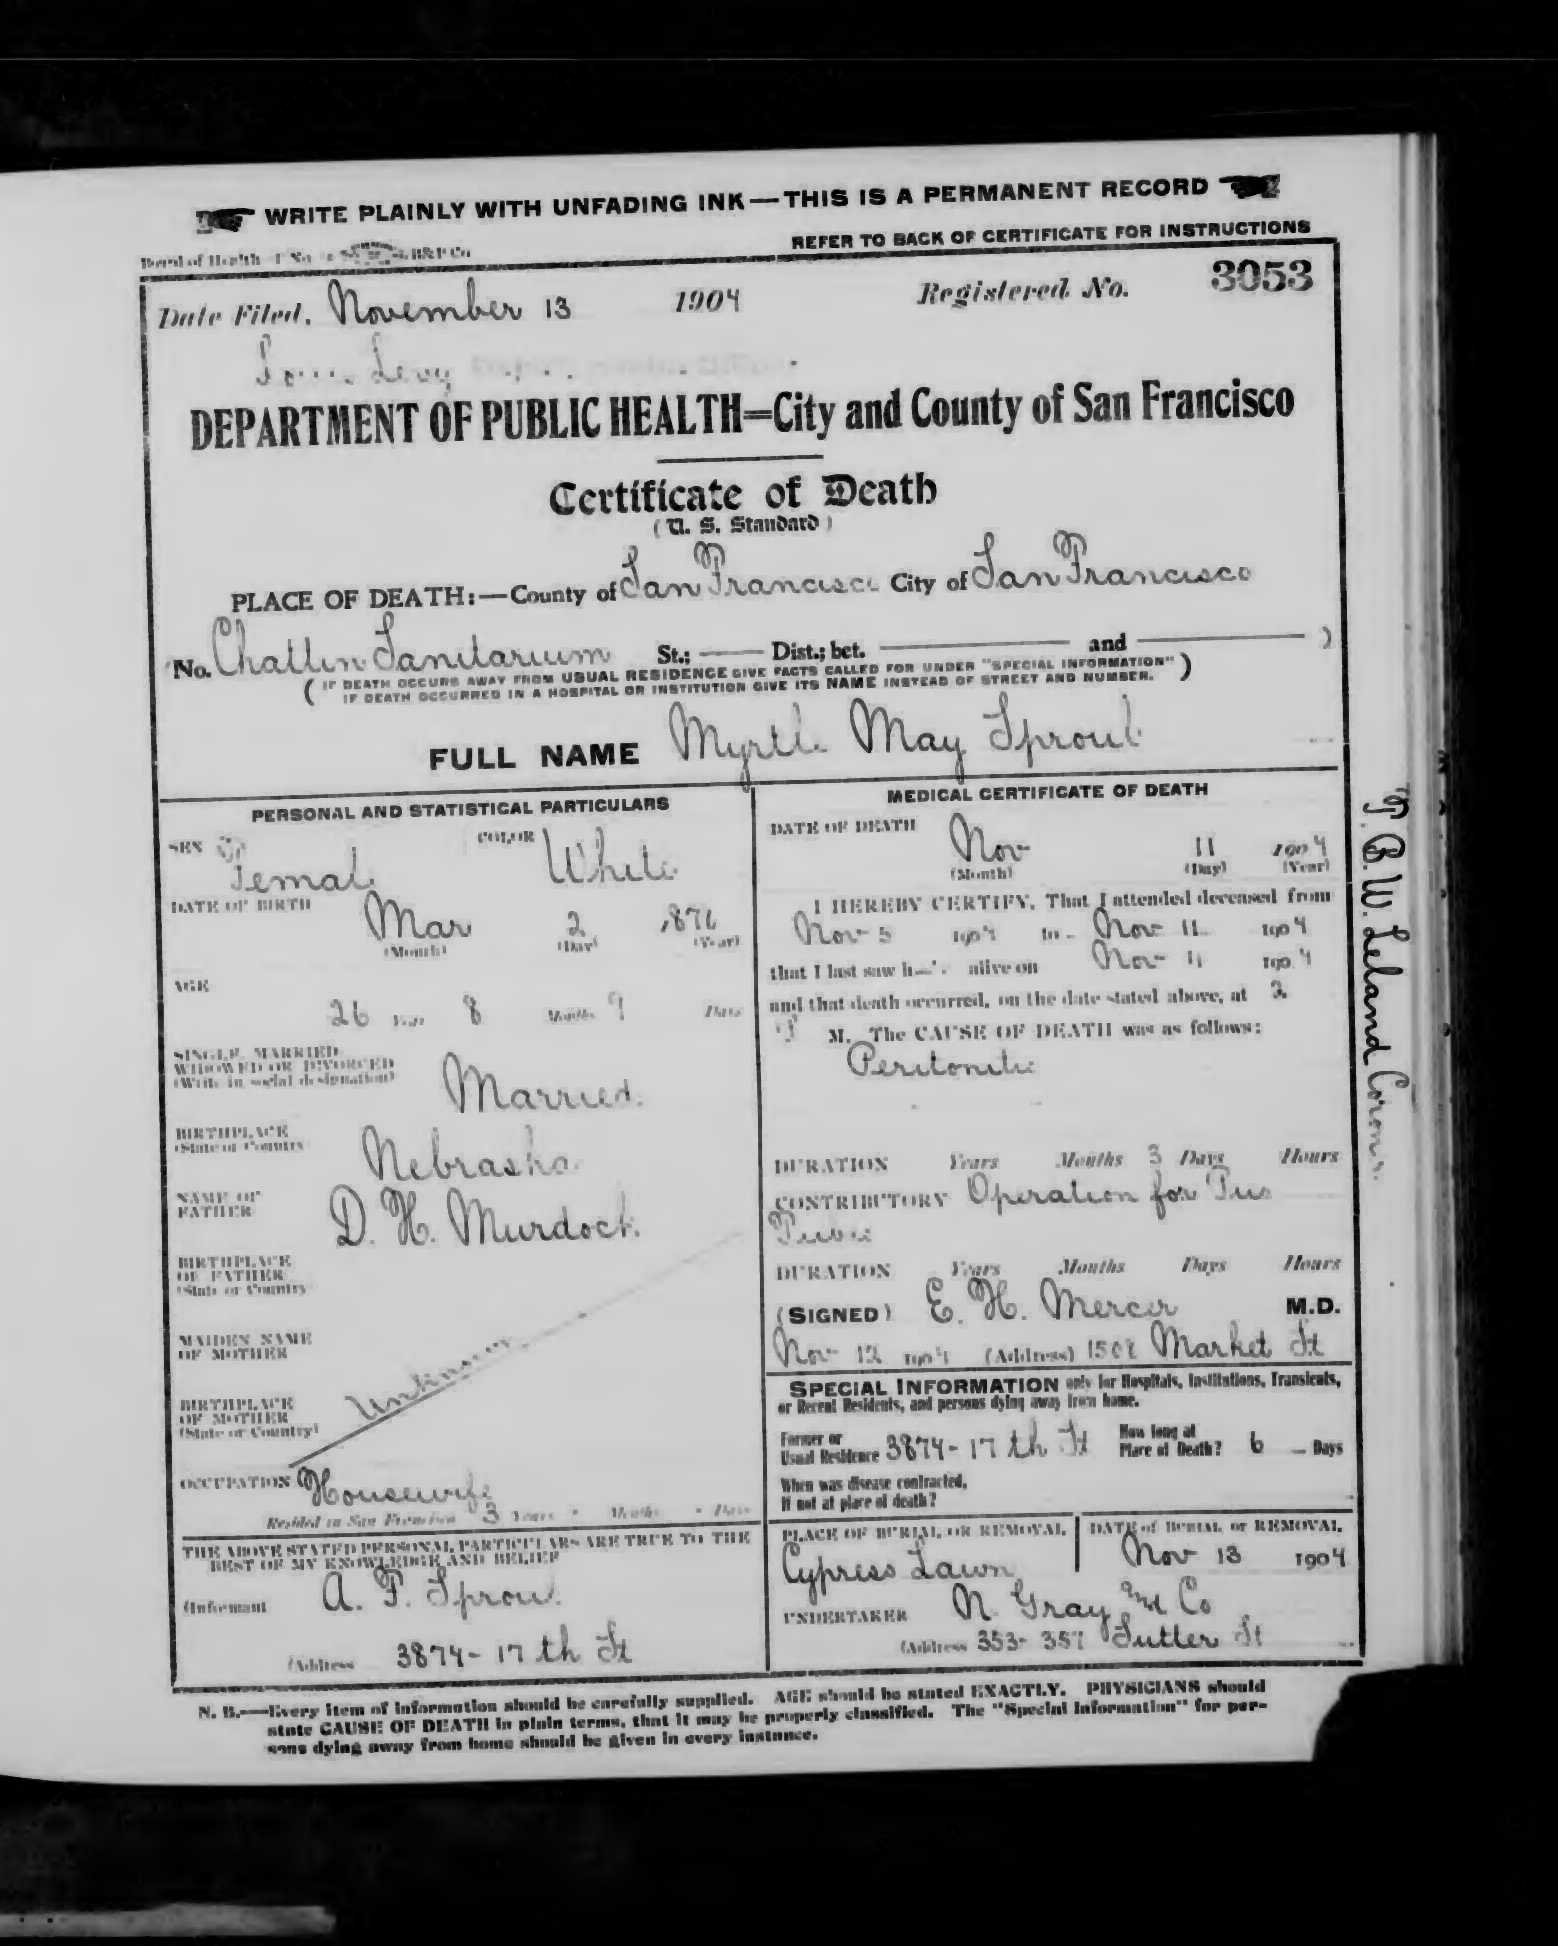 WRITE PLAINLY WITH UNFADING INK—THIS IS A PERMANENT RECORD
REFER TO BACK OF CERTIFICATE FOR INSTRUCTIONS
Board of Health
Date Filed, November 13 1904 Registered No. 3053
Levy
DEPARTMENT OF PUBLIC HEALTH=City and County of San Francisco
Certificate of Death
(U. S. Standard)
PLACE OF DEATH:—County of San Francisco City of San Francisco
No. Sanitarium St.; —— Dist.; bet. —— and —— )
( IF DEATH OCCURS AWAY FROM USUAL RESIDENCE GIVE FACTS CALLED FOR UNDER "SPECIAL INFORMATION" )
IF DEATH OCCURRED IN A HOSPITAL OR INSTITUTION GIVE ITS NAME INSTEAD OF STREET AND NUMBER.
FULL NAME Myrtle May Sproul
PERSONAL AND STATISTICAL PARTICULARS
SEX Female COLOR White
DATE OF BIRTH Mar 2
(Month) (Day) (Year)
AGE
26 Years 8 Months 9 Days
SINGLE, MARRIED
WIDOWED OR DIVORCED
(Write in social designation) Married
BIRTHPLACE
(State or Country) Nebraska
NAME OF
FATHER D. H. Murdock
BIRTHPLACE
OF FATHER
(State or Country)
MAIDEN NAME
OF MOTHER
Unknown
BIRTHPLACE
OF MOTHER
(State or Country)
OCCUPATION Housewife
Resided in San Francisco 3 Years - Months - Days
THE ABOVE STATED PERSONAL PARTICULARS ARE TRUE TO THE
BEST OF MY KNOWLEDGE AND BELIEF
(Informant A. F. Sproul
(Address 3874-17th St
MEDICAL CERTIFICATE OF DEATH
DATE OF DEATH Nov 11 1904
(Month) (Day) (Year)
I HEREBY CERTIFY, That I attended deceased from
Nov 5 1904 to Nov 11 1904
that I last saw h alive on Nov 11 1904
and that death occurred, on the date stated above, at 2
P M. The CAUSE OF DEATH was as follows:
Peritonitis
DURATION Years Months 3 Days Hours
CONTRIBUTORY Operation for Pus
Tubes
DURATION Years Months Days Hours
(SIGNED) E. H. Mercer M.D.
Nov 12 1904 (Address) 1508 Market St
SPECIAL INFORMATION only for Hospitals, Institutions, Transients,
or Recent Residents, and persons dying away from home.
Former or
Usual Residence 3874-17th St
How long at
Place of Death? 6 Days
When was disease contracted,
If not at place of death?
PLACE OF BURIAL OR REMOVAL
Cypress Lawn
DATE of BURIAL or REMOVAL
Nov 13 1904
UNDERTAKER N. Gray and Co
(Address 353-357 Sutter St
N. B.—Every item of information should be carefully supplied. AGE should be stated EXACTLY. PHYSICIANS should
state CAUSE OF DEATH in plain terms, that it may be properly classified. The "Special Information" for per-
sons dying away from home should be given in every instance.
T. B. W. Leland Coroner.